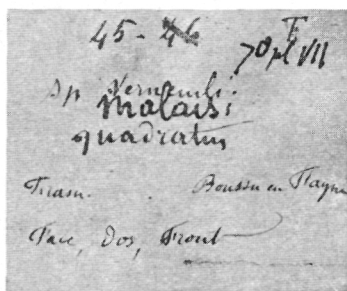 45-46
T
70 pl VII
sp Verneuili
malaisi
quadratus
Frasn. Boussu en Fagne
Face, Dos, Front